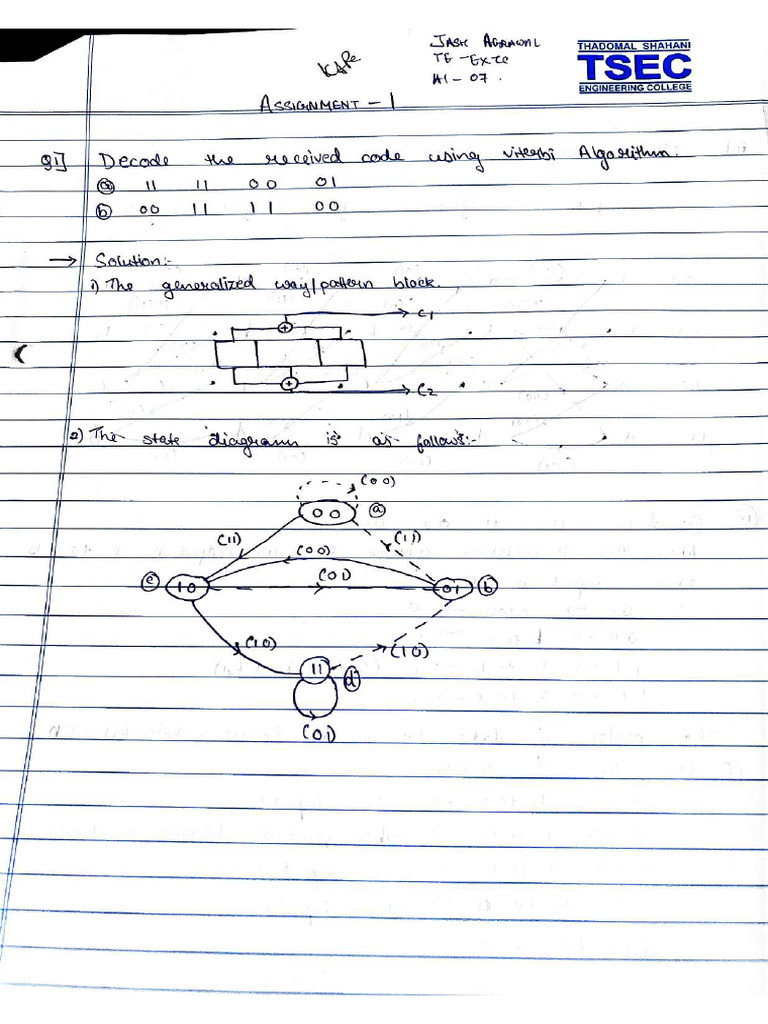 JASH AGRAWAL
TE - EXTC
A1 - 07.
THADOMAL SHAHANI
TSEC
ENGINEERING COLLEGE
ASSIGNMENT - 1
Q1] Decode the received code using viterbi Algorithm.
(a) 11 11 00 01
(b) 00 11 11 00
→ Solution:-
1) The generalized way/pattern block.
C1
C2
2) The state diagram is as follows:-
(00)
00 (a)
(11) (11)
(00)
(01)
(c) 10 01 (b)
(10) (10)
11
(d)
(01)